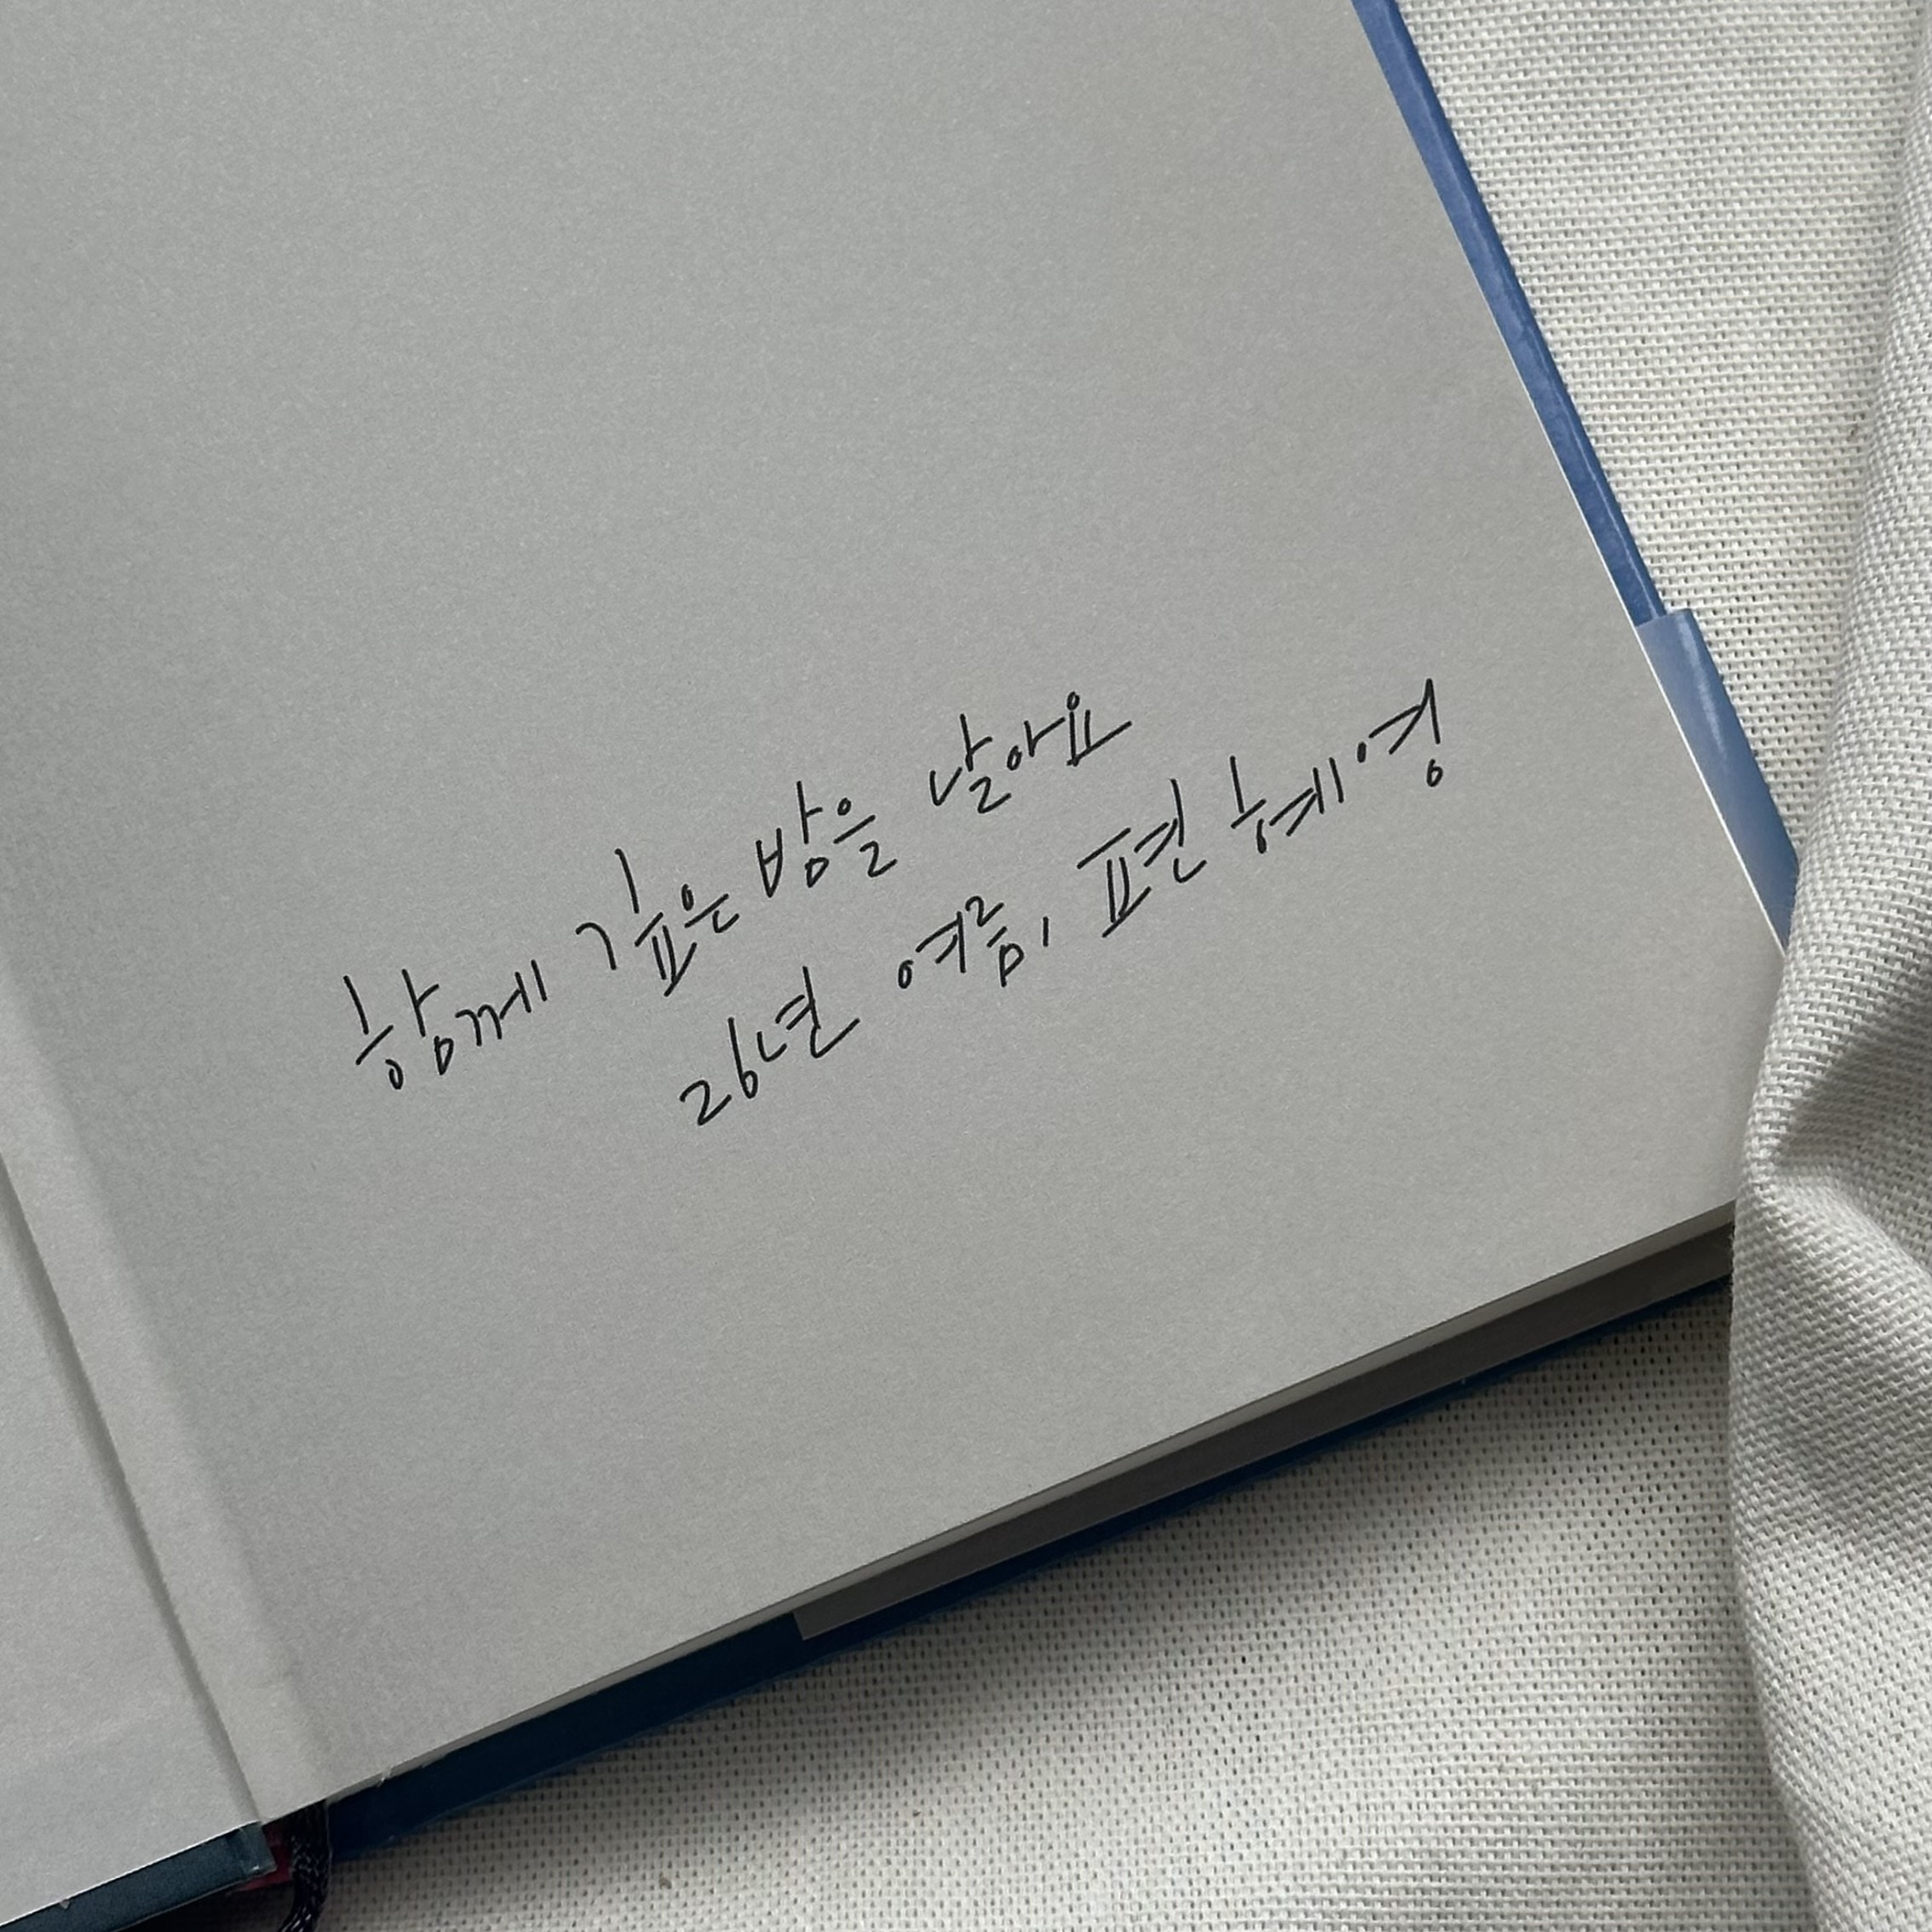 함께 깊은 밤을 날아요
26년 여름, 편혜영